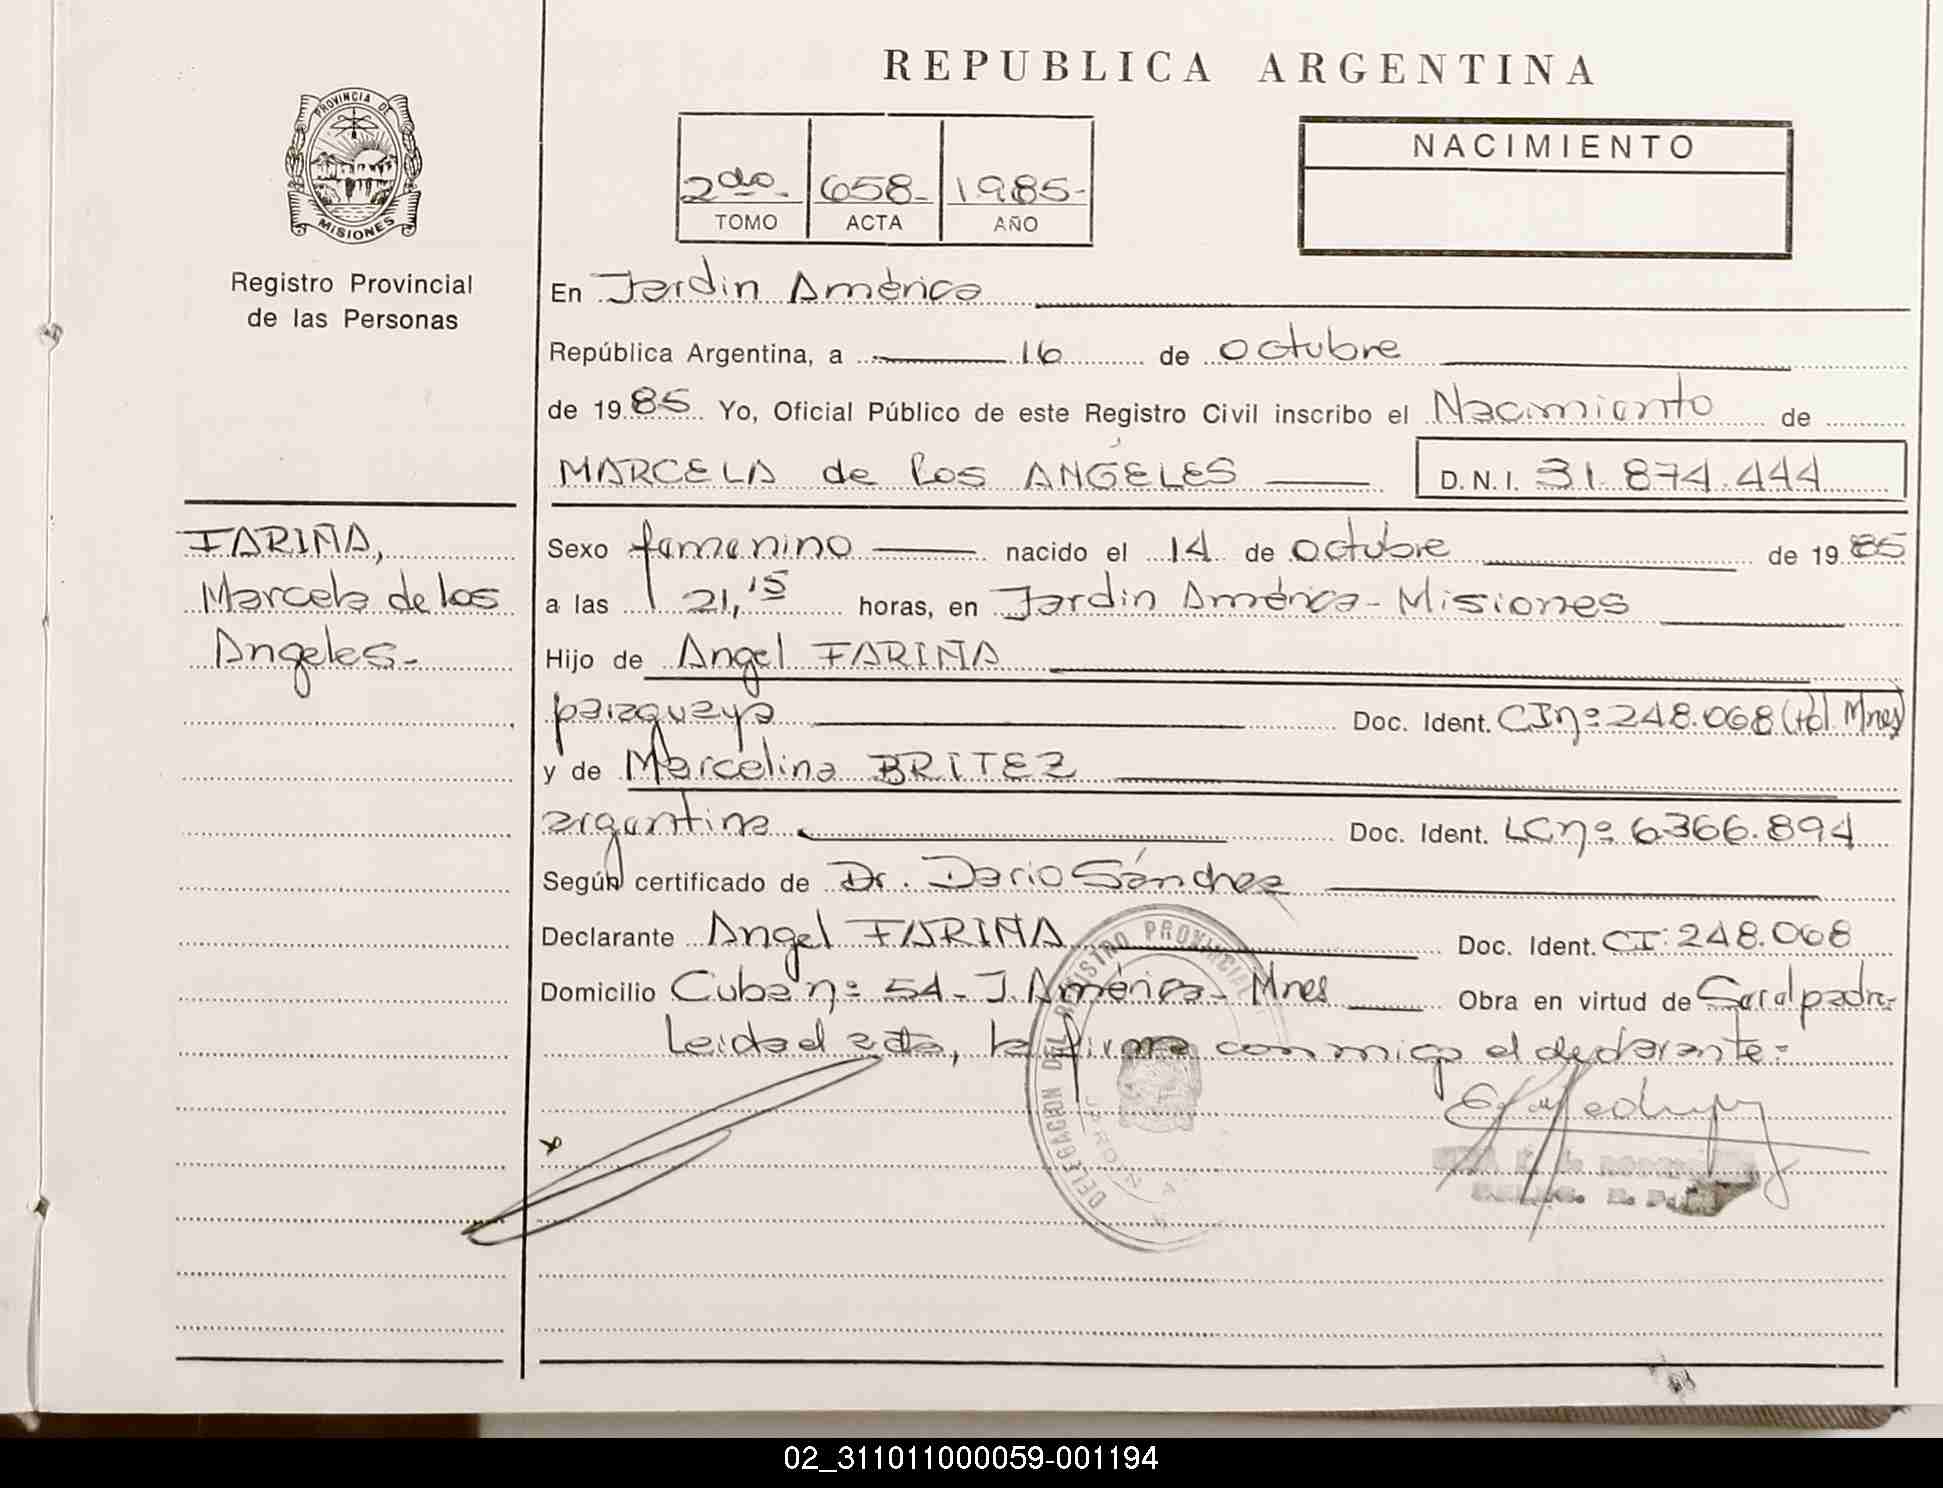 REPUBLICA ARGENTINA
PROVINCIA DE
MISIONES
Registro Provincial
de las Personas
2do. 658- 1985-
TOMO ACTA AÑO
NACIMIENTO
En Jardin América
República Argentina, a 16 de octubre
de 1985 Yo, Oficial Público de este Registro Civil inscribo el Nacimiento de
MARCELA de los ANGELES D.N.I. 31.874.444
FARIÑA,
Marcela de los
Angeles-
Sexo femenino nacido el 14 de octubre de 1985
a las 21,15 horas, en Jardin América - Misiones
Hijo de Angel FARIÑA
paraguaya Doc. Ident. CI nº 248.068 (Pol. Mnes)
y de Marcelina BRITEZ
argentina Doc. Ident. LC nº 6366.894
Según certificado de Dr. Dario Sánchez
Declarante Angel FARIÑA Doc. Ident. CI: 248.068
Domicilio Cuba nº 54 - J. América - Mnes Obra en virtud de Ser el padre-
Leida el acta, la firma conmigo el declarante=
DELEGACION DEL REGISTRO PROVINCIAL
02_311011000059-001194